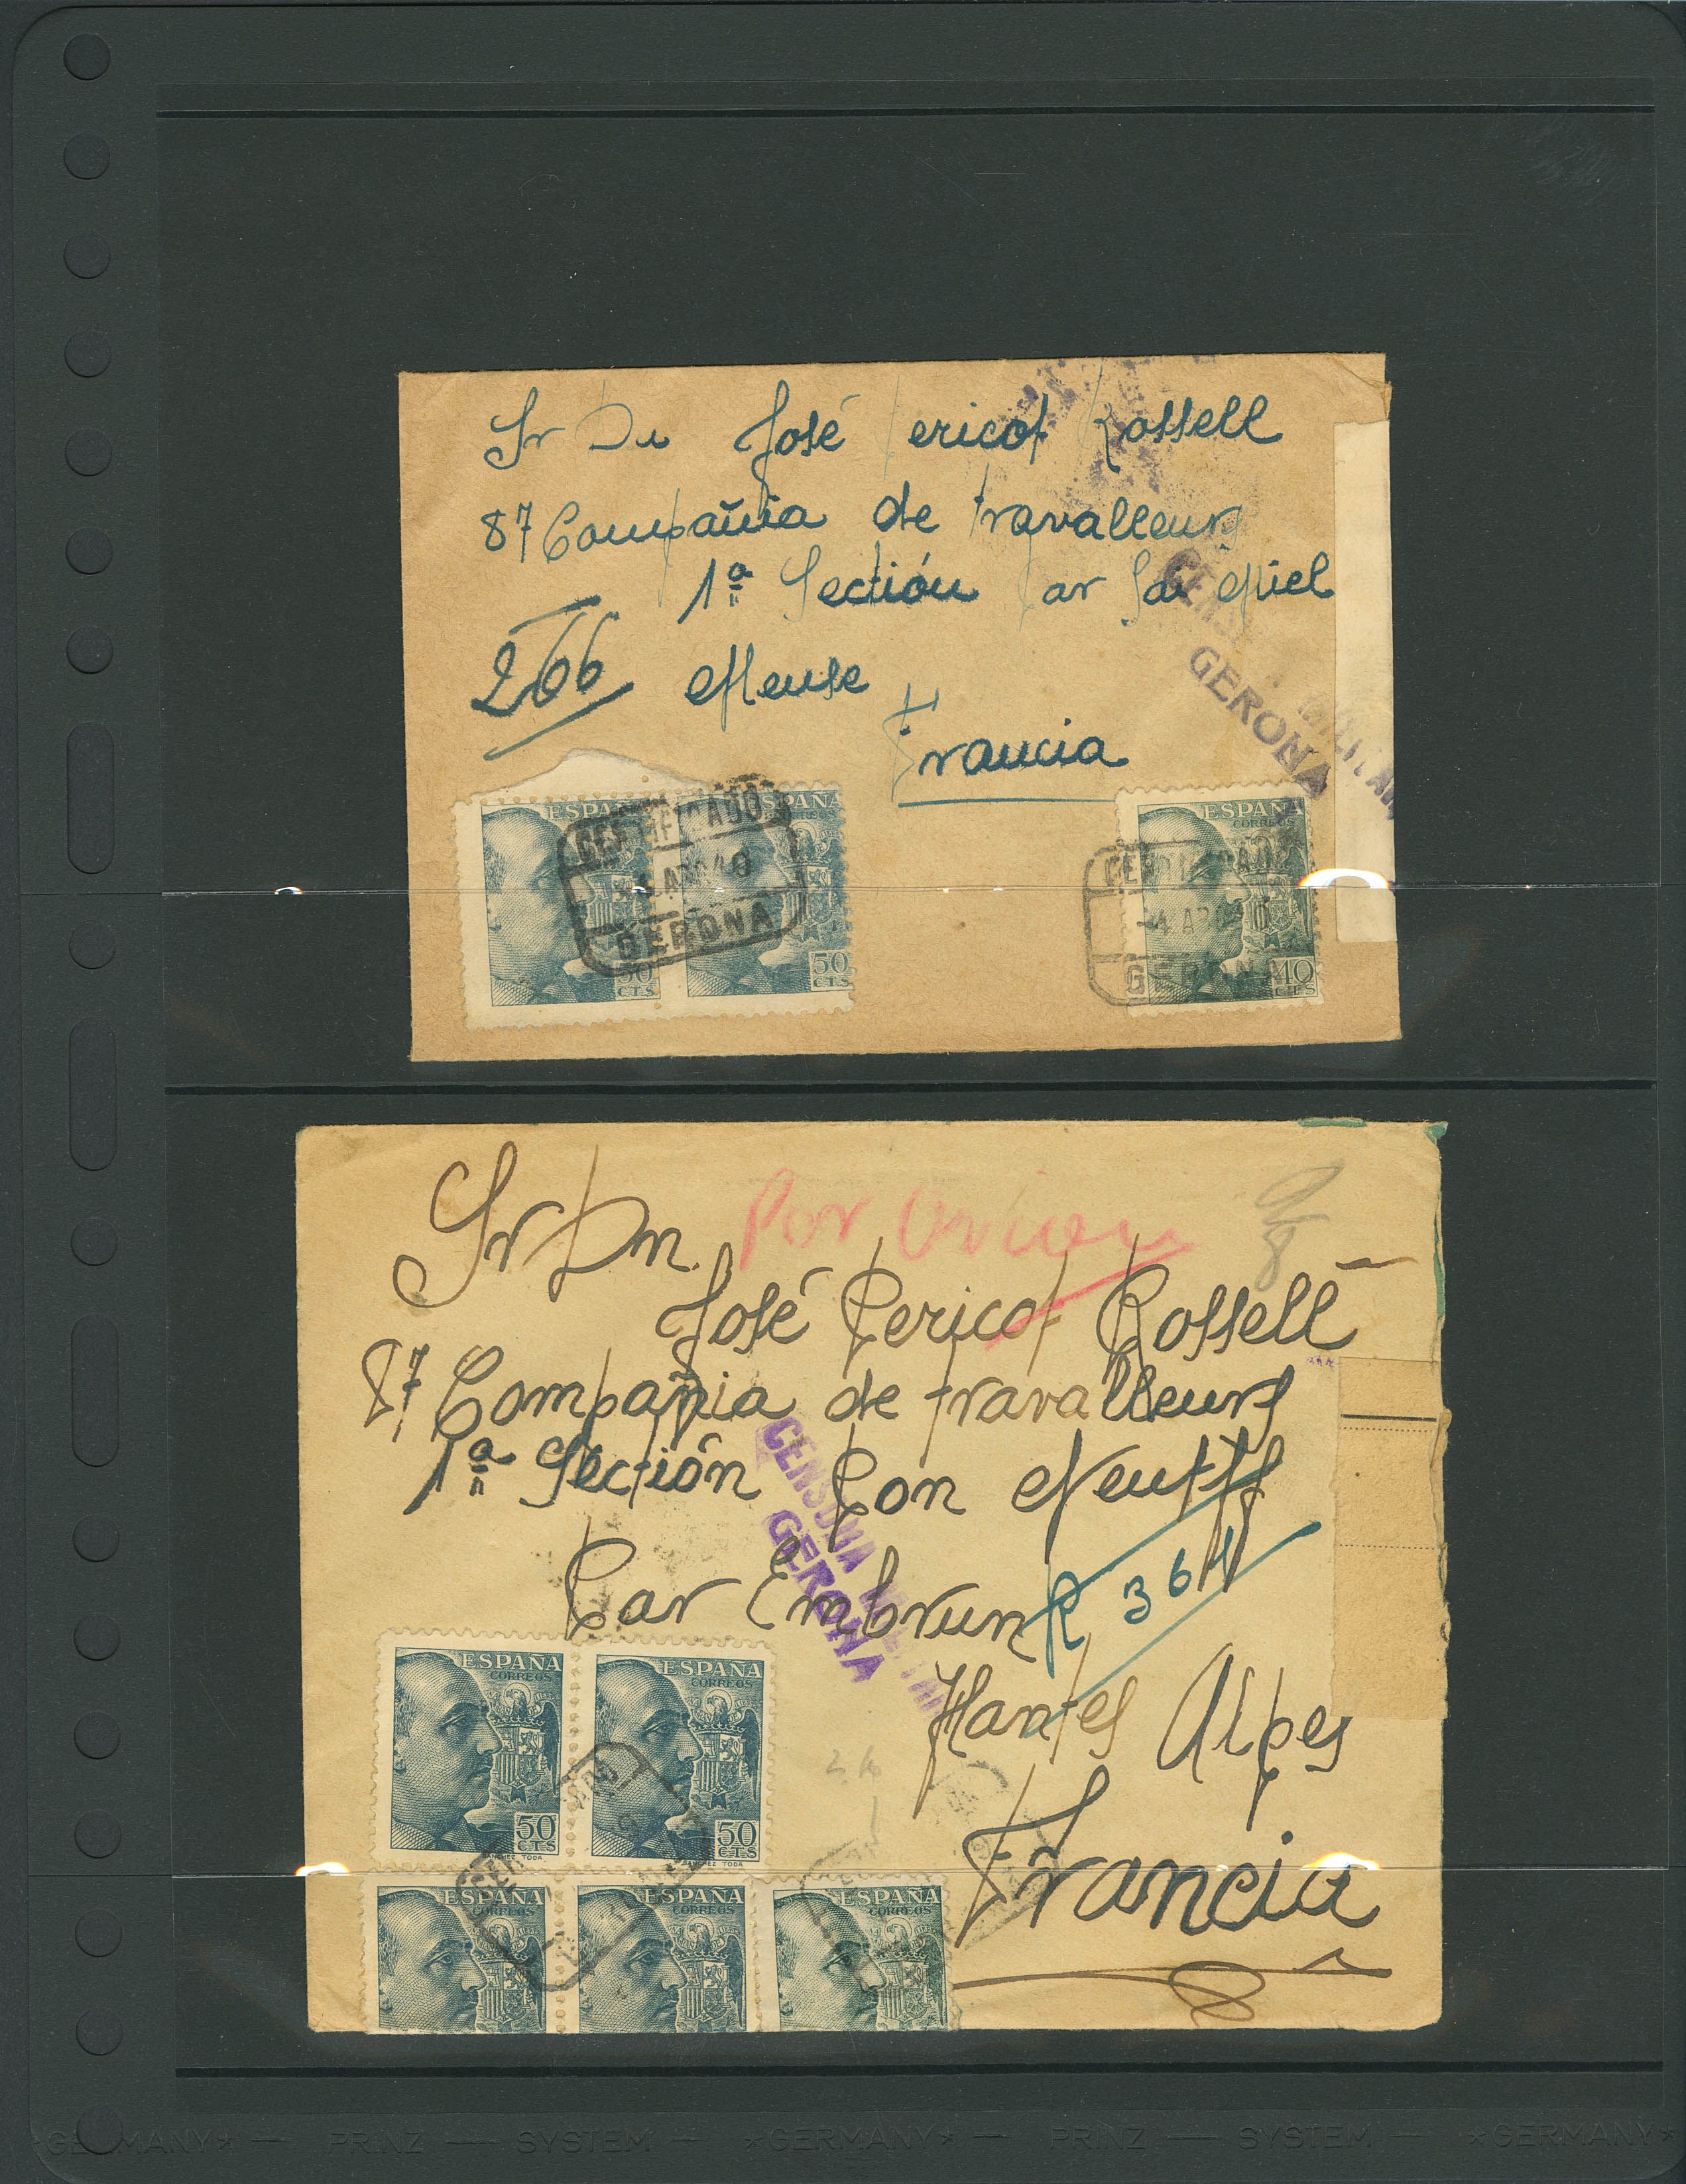 Sr Dn José Pericot Rossell
87 Compañia de travalleurs
1ª Sectión Par Sai Miel
266 Meuse
Francia
CENSURA MILITAR
GERONA
ESPAÑA
ESPAÑA
CORREOS
50
CTS
50
CTS
CERTIFICADO
GERONA
ESPAÑA
CORREOS
40
CTS
CERTIFICADO
-4 ABR 40
GERONA
Sr Dn.
Por Avion
José Pericot Rossell
87 Compañia de travalleurs
1ª Sectión Pon
Par Embrun
R 361
Hantes Alpes
Francia
CENSURA MILITAR
GERONA
ESPAÑA
CORREOS
50
CTS
SANCHEZ TODA
ESPAÑA
CORREOS
50
CTS
SANCHEZ TODA
ESPAÑA
CORREOS
ESPAÑA
CORREOS
ESPAÑA
CORREOS
*GERMANY* — PRINZ — SYSTEM — *GERMANY* — PRINZ — SYSTEM — *GERMANY*